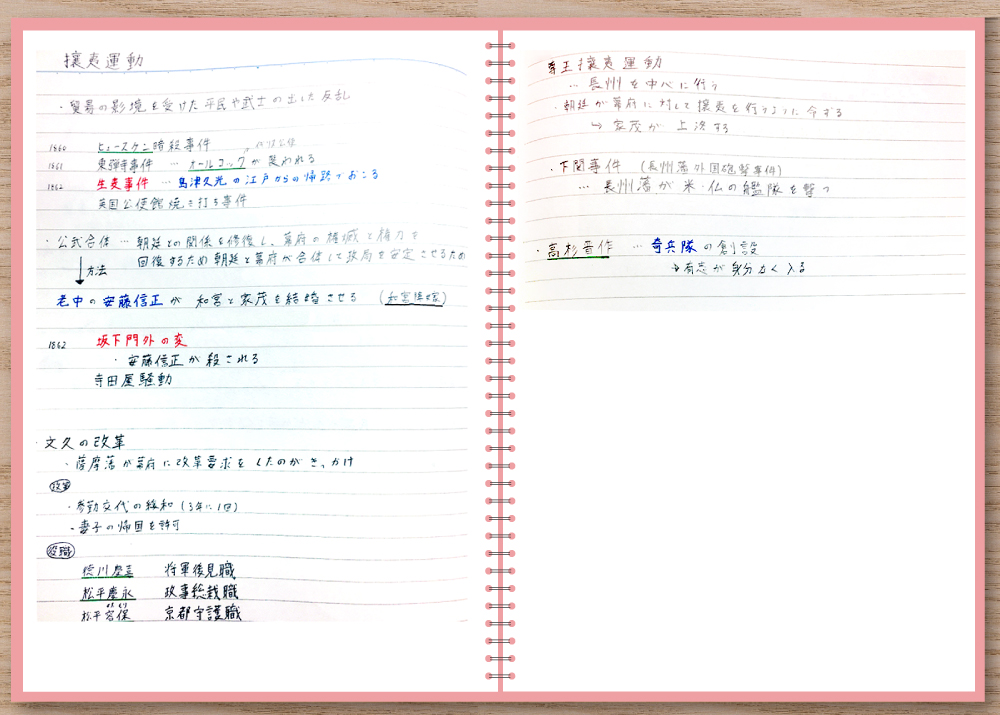 攘夷運動
・貿易の影境を受けた平民や武士の出した反乱
1860 ヒュースケン暗殺事件
1861 東禅寺事件 … オールコックが襲われる
1862 生麦事件 … 島津久光の江戸からの帰路でおこる
英国公使館焼き打ち事件
・公武合体 … 朝廷との関係を修復し、幕府の権威と権力を
回復するため朝廷と幕府が合体して政局を安定させるため
方法
老中の安藤信正が 和宮と家茂を結婚させる (和宮降嫁)
1862 坂下門外の変
・安藤信正が殺される
寺田屋騒動
・文久の改革
・薩摩藩が幕府に改革要求をしたのがきっかけ
政策
・参勤交代の緩和 (3年に1回)
・妻子の帰国を許可
役職
徳川慶喜 将軍後見職
松平慶永 政事総裁職
松平容保 京都守護職
尊王攘夷運動
… 長州を中心に行う
・朝廷が幕府に対して攘夷を行うように令する
→ 家茂が上洛する
・下関事件 (長州藩外国砲撃事件)
… 長州藩が米・仏の艦隊を撃つ
・高杉晋作 … 奇兵隊の創設
→有志が身分なく入る